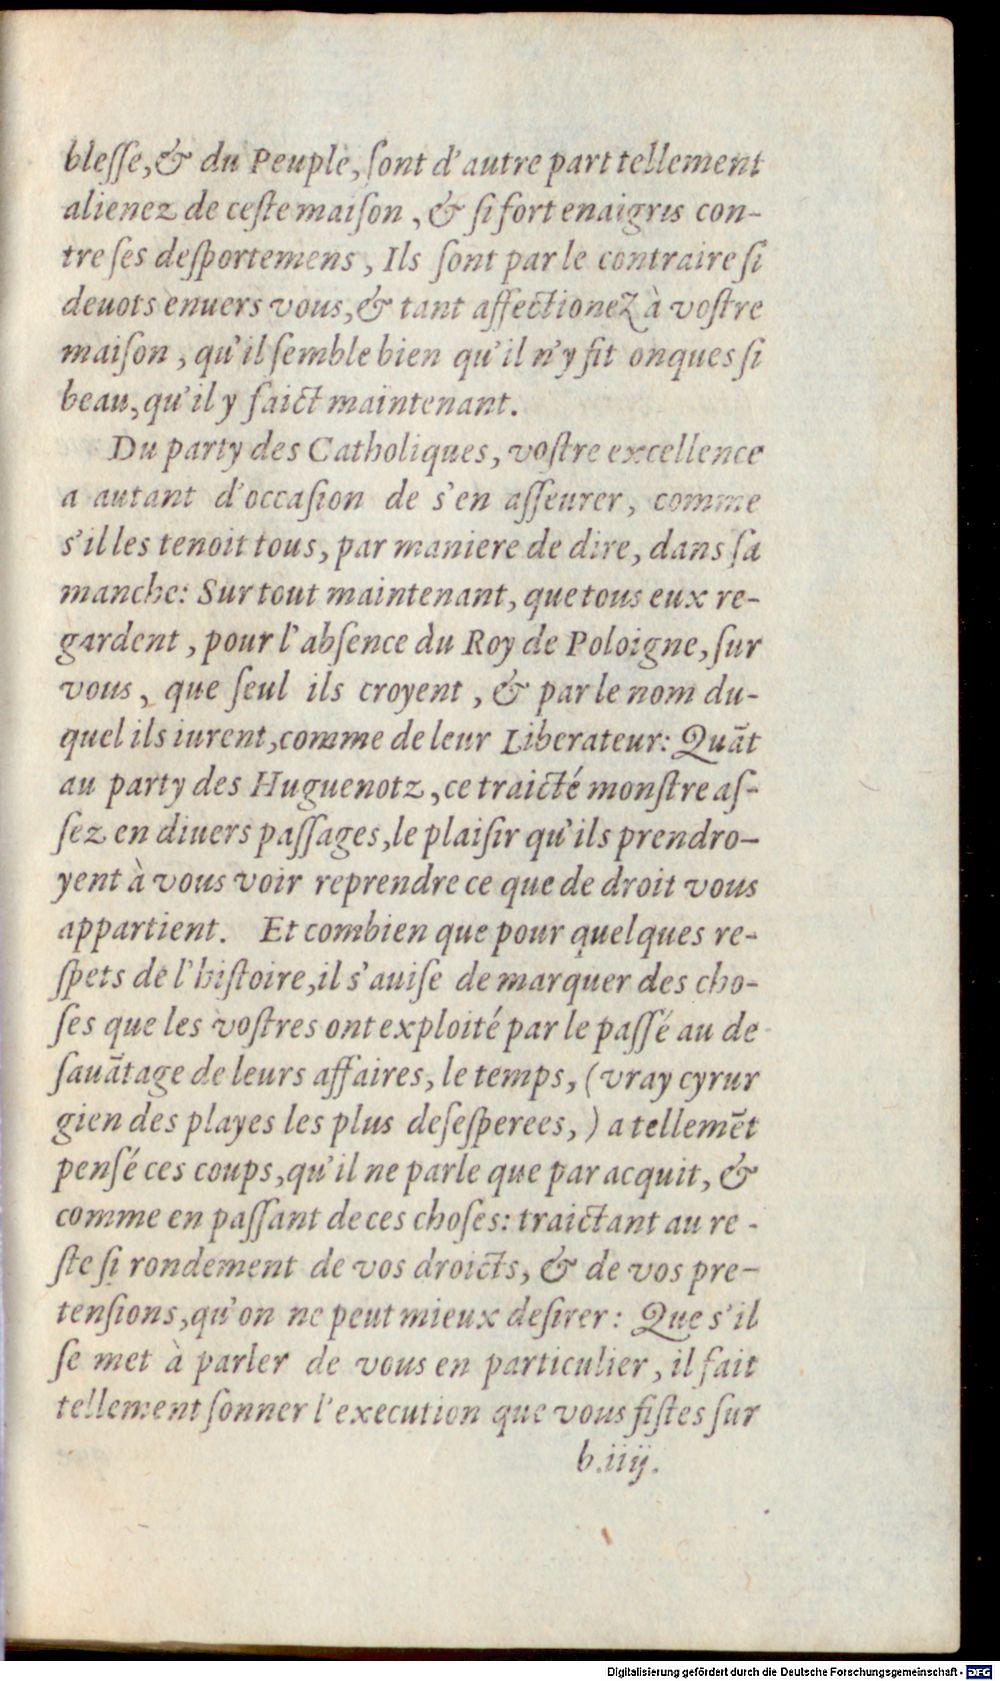 bleſſe, & du Peuple, ſont d'autre part tellement
alienez de ceſte maiſon, & ſi fort enaigris con-
tre ſes deſportemens, Ils ſont par le contraire ſi
deuots enuers vous, & tant affectionez à voſtre
maiſon, qu'il ſemble bien qu'il n'y fit onques ſi
beau, qu'il y faict maintenant.
Du party des Catholiques, voſtre excellence
a autant d'occaſion de s'en aſſeurer, comme
s'il les tenoit tous, par maniere de dire, dans ſa
manche: Sur tout maintenant, que tous eux re-
gardent, pour l'abſence du Roy de Poloigne, ſur
vous, que ſeul ils croyent, & par le nom du-
quel ils iurent, comme de leur Liberateur: Quāt
au party des Huguenotz, ce traicté monſtre aſ-
ſez en diuers paſſages, le plaiſir qu'ils prendro-
yent à vous voir reprendre ce que de droit vous
appartient. Et combien que pour quelques re-
ſpets de l'hiſtoire, il s'auiſe de marquer des cho-
ſes que les voſtres ont exploité par le paſſé au de
ſauātage de leurs affaires, le temps, (vray cyrur
gien des playes les plus deſeſperees,) a tellemēt
penſé ces coups, qu'il ne parle que par acquit, &
comme en paſſant de ces choſes: traictant au re-
ſte ſi rondement de vos droicts, & de vos pre-
tenſions, qu'on ne peut mieux deſirer: Que s'il
ſe met à parler de vous en particulier, il fait
tellement ſonner l'execution que vous fiſtes ſur
b.iiij.
Digitalisierung gefördert durch die Deutsche Forschungsgemeinschaft - DFG